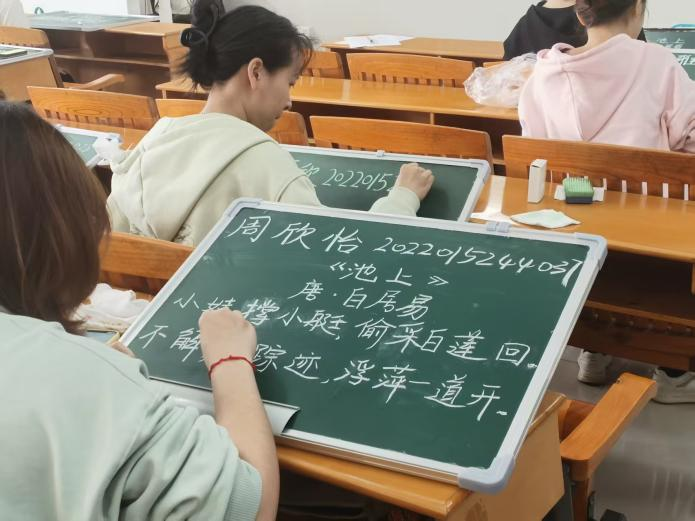 周欣怡 2022015244037
《池上》
唐·白居易
小娃撑小艇,偷采白莲回.
不解 踪迹,浮萍一道开.
欣 2022015